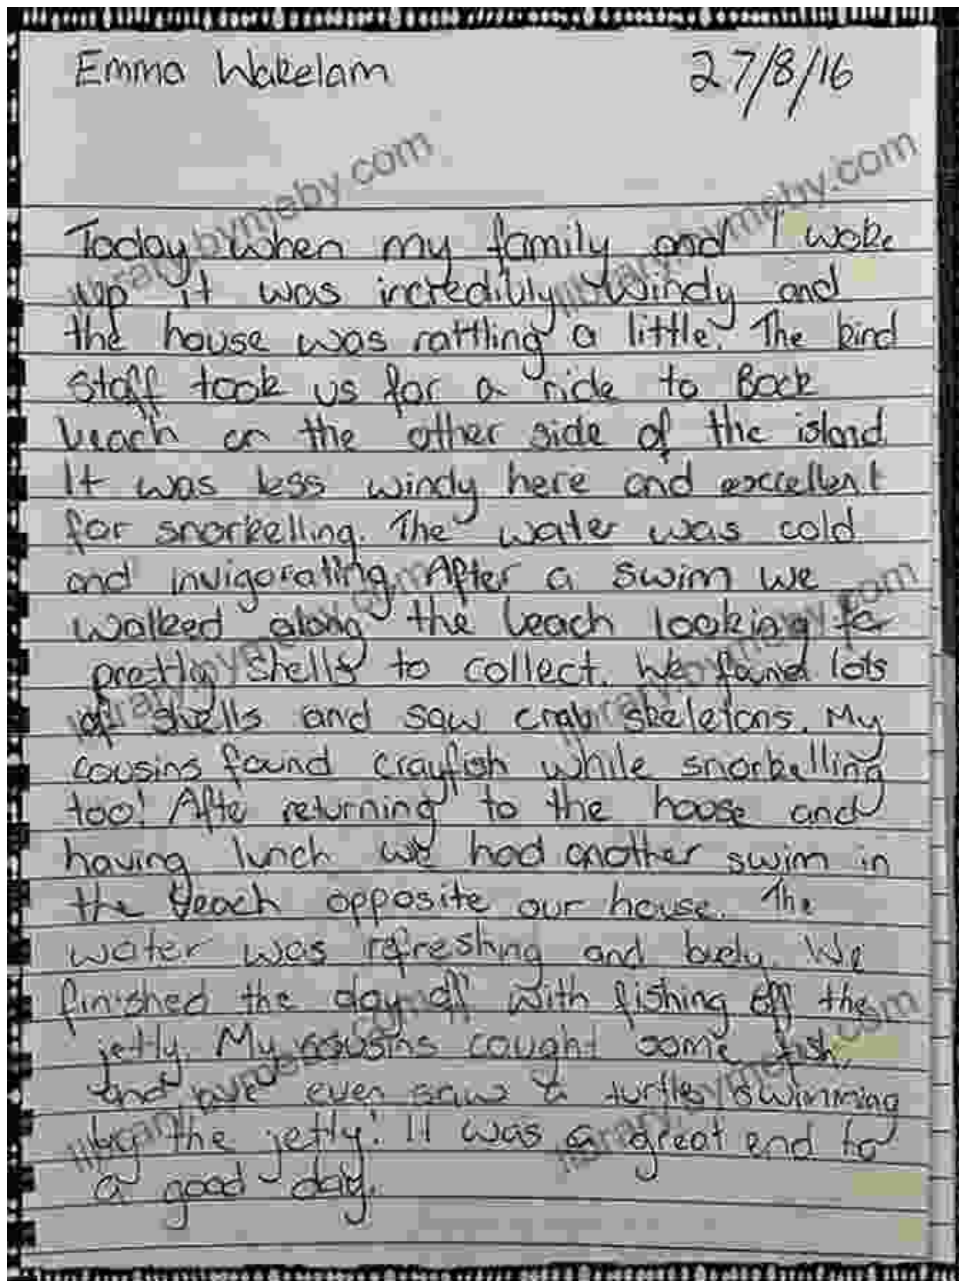 Emma Wakelam 27/8/16
Today when my family and I woke
up it was incredibly windy and
the house was rattling a little. The kind
staff took us for a ride to Back
beach on the other side of the island
It was less windy here and excellent
for snorkelling. The water was cold
and invigorating. After a swim we
walked along the beach looking for
pretty shells to collect. We found lots
of shells and saw crab skeletons. My
cousins found crayfish while snorkelling
too! Afte returning to the house and
having lunch we had another swim in
the beach opposite our house. The
water was refreshing and lovely. We
finished the day off with fishing off the
jetty. My cousins caught some fish
and we even saw a turtle swimming
by the jetty! It was a great end to
a good day.
library.bymeby.com
library.bymeby.com
library.bymeby.com
library.bymeby.com
library.bymeby.com
library.bymeby.com